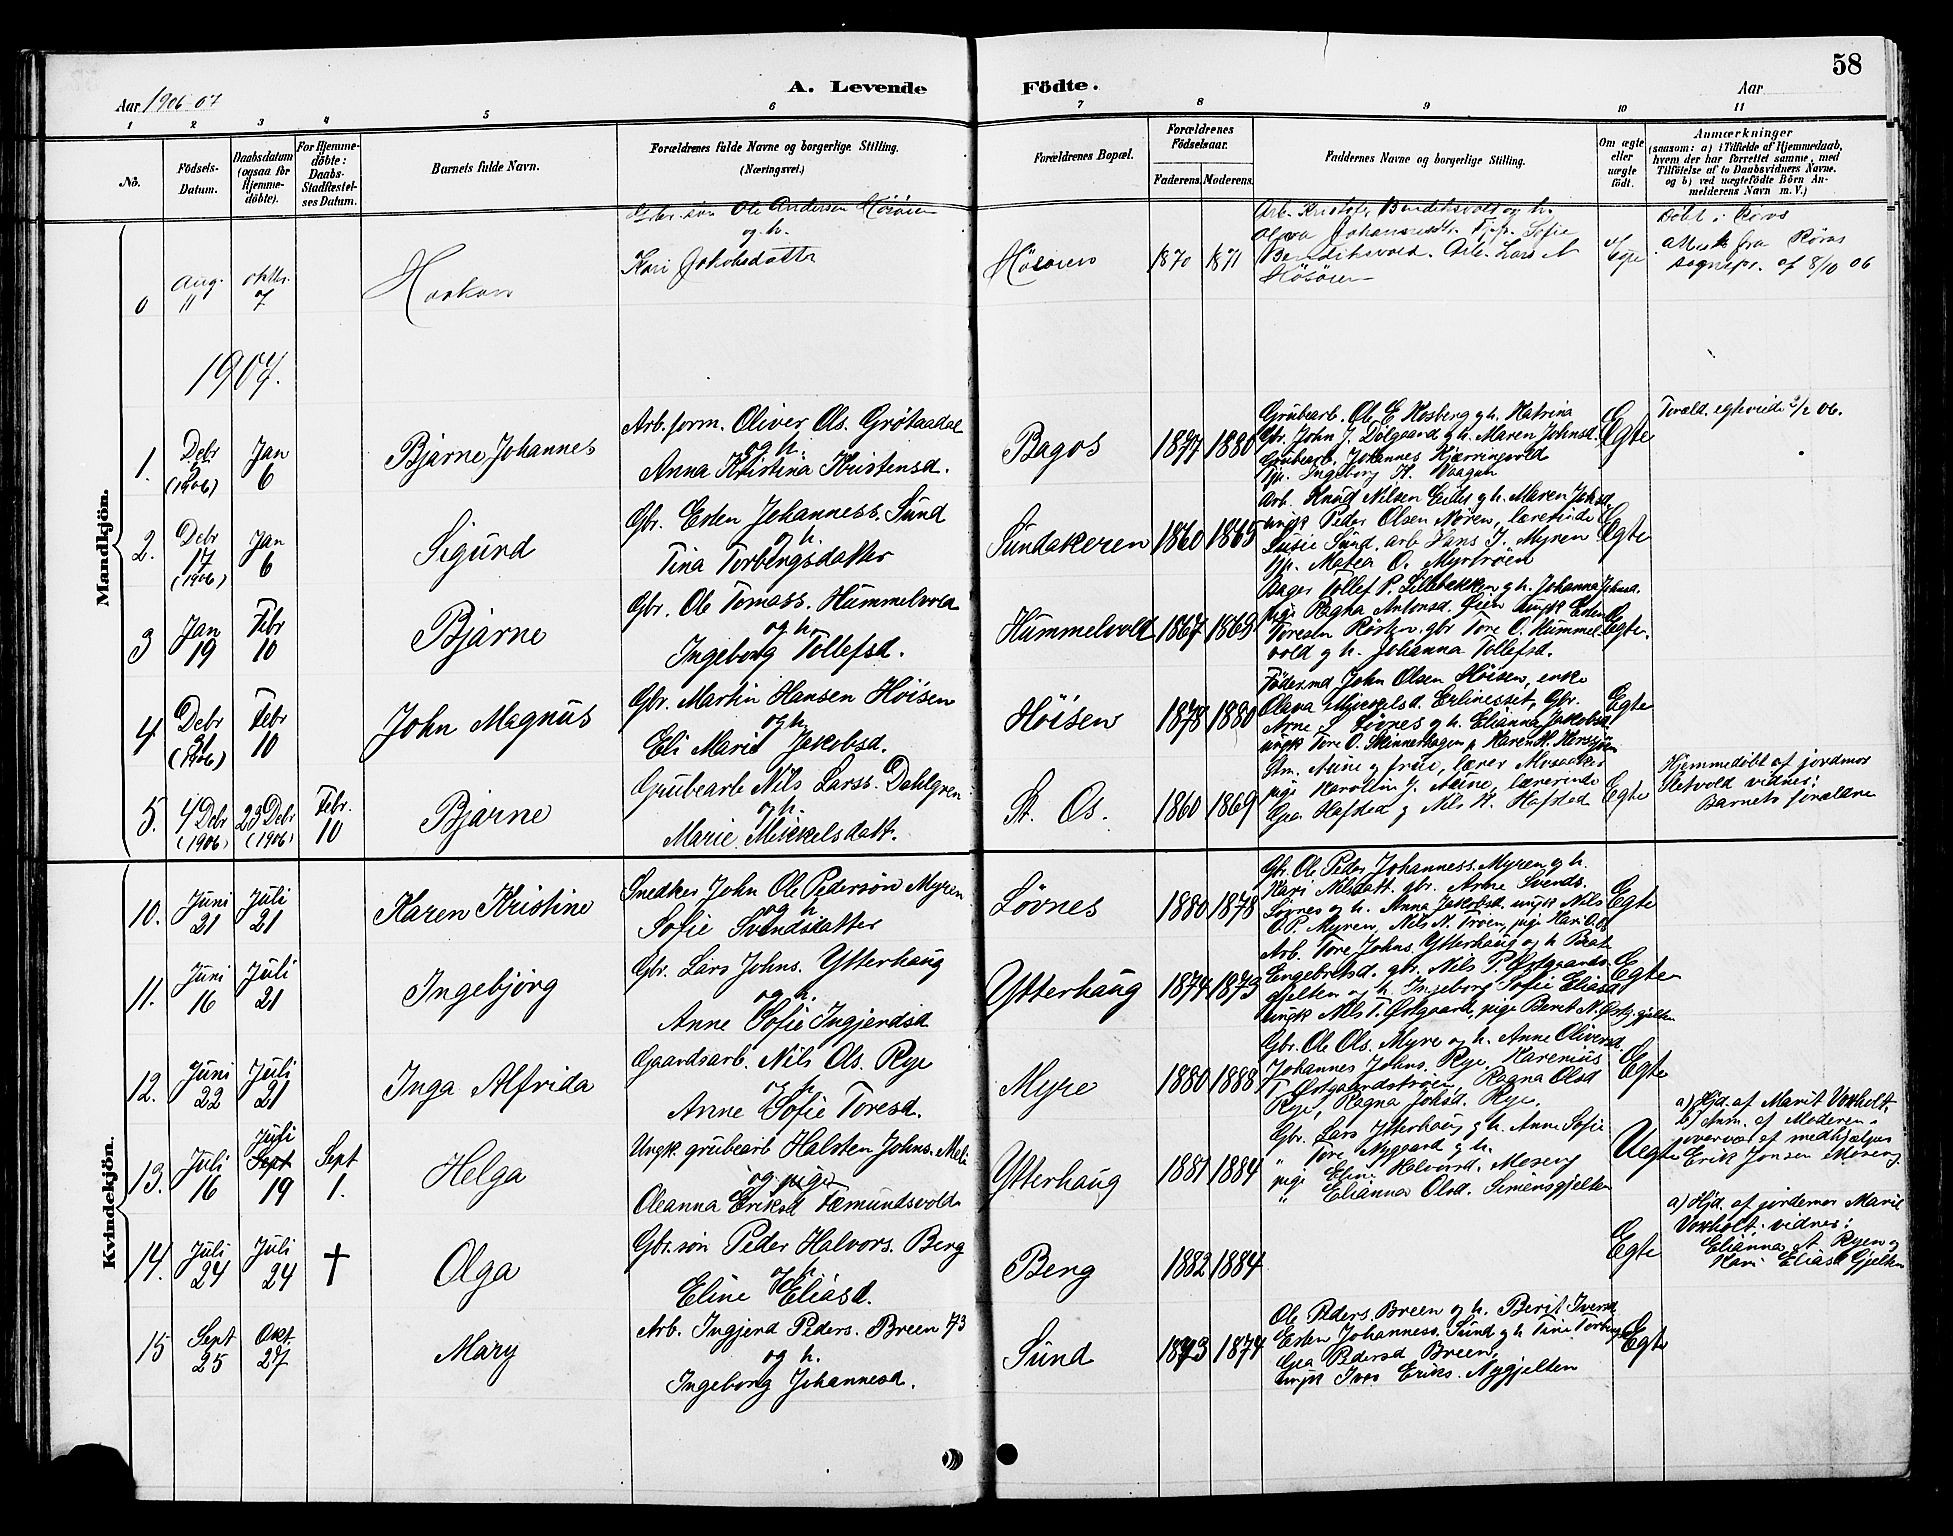 58
Aar 1906-07
A. Levende Födte.
Aar
1 2 3 4 5 6 7 8 9 10 11
No.
Födsels-Datum.
Daabsdatum (ogsaa for Hjemmedöbte).
For Hjemmedöbte: Daabs-Stadfæstelses Datum.
Barnets fulde Navn.
Forældrenes fulde Navne og borgerlige Stilling. (Næringsvei.)
Forældrenes Bopæl.
Forældrenes Födselsaar.
Faderens. Moderens.
Faddernes Navne og borgerlige Stilling.
Om ægte eller uægte født.
Anmærkninger
(saasom: a) i Tilfælde af Hjemmedaab,
hvem der har forrettet samme, med
Tilföielse af to Daabsvidners Navne.
og b) ved uægtefödte Börn An-
melderens Navn m. V.)
Mandkjön.
0 Aug. 11 oktbr. 7
Haakon
Gbr. søn Ole Andersen Høsøien
og h.
Kari Jakobsdatter
Høsøien 1870 1871
Olava Johannesdtr. Pige Sofie
Bendiksvold. Arb. Lars A
Høsøien
Døbt i Røros
Attest fra Røros
sognepr. af 8/10 06
1907.
1. Debr 5 (1906) Jan 6
Bjarne Johannes
Arb.form. Oliver Ols. Grötaadal
og h.
Anna Kristina Kristensd.
Bagos 1877 1880
Grubearb. Ole E. Hosberg g h. Katrina
Gbr. John J. Dölgaard g h. Maren Johnsd.
Grubearb. Johannes Kjærringvold
pp. Ingeborg H. Vaagan
Egte
Foræld. egteviede 2/2 06.
2. Debr 17 (1906) Jan 6
Sigurd
Gbr. Esten Johanness. Sund
og h.
Tina Torbergsdatter
Sundakeren 1860 1865
Arb. Knud Nilsen Eidis g h. Maren Johsd.
ungk Peder Olsen Møren, lærerinde
Susie Sund, arb Hans J. Myren
pp. Matea O. Myrtröen
Egte
3 Jan 19 Febr 10
Bjarne
Gbr. Ole Tomass. Hummelvold
og h.
Ingeborg Tollefsd.
Hummelvold 1867 1869
Bager Tollef P. Lillebakken g h. Johanna Johnsd.
pige Ragna Antonsd. Öien ungk Esten
Toresen Røsten, gbr Tore O. Hummel-
vold g h. Johanna Tollefsd.
Egte.
4 Debr 31 (1906) Febr 10
John Magnus
Gbr. Martin Hansen Höisen
og h.
Eli Marie Jakobsd.
Höisen 1878 1880
Föderaad John Olsen Höisen, enke
Olava Mikkelsd. Erlinesset, Gbr.
Arne S Lövnes g h. Elianna Jakobsd
ungk Tore O. Skinnerhagen p Karen H. Herssjöen
Egte
5. 4 Debr (1906) 23 Debr (1906) Febr. 10
Bjarne
Grubearb Nils Larss. Dahlgren
og h.
Marie Mikkelsdatt.
St. Os. 1860 1869
Stm. Aune g frue, lærer Mosaaker
pige Karoline J. Aune, lærerinde
Gea Hafsted g Nils H. Hafsted
Egte
Hjemmedöbt af jordmor
Sletvold vidner:
Barnets forældre
Kvindekjön.
10. Juni 21 Juli 21
Karen Kristine
Snedker John Ole Pedersön Myren
og h.
Sofie Svendsdatter
Lövnes 1880 1878
Gbr. Ole Peder Johanness. Myren g h.
Kari Nilsdatt. gbr. Arne Svends.
Lövnes g h. Anna Jakobsd. ungk Nils
O.P. Myren, Nils N. Tröen, pige Kari O.
Egte
11. Juni 16 Juli 21
Ingebjörg
Gbr. Lars Johns. Ytterhaug
og h.
Anne Sofie Ingjerdsd
Ytterhaug 1874 1873
Arb. Tore Johns. Ytterhaug og h Beat
Engebretsd. gbr. Nils P. Östgaards-
gjelten og h. Ingeborg Sofie Eliasd
ungk Nils T. Östgaard, pige Beret N. Östg.gjelten
Egte
12. Juni 22 Juli 21
Inga Alfrida
Gaardsarb. Nils Ols. Rye
og h.
Anne Sofie Toresd.
Myre 1880 1888
Gbr. Ole Ols. Myre og h. Anne Oliversd.
Johannes Johns. Rye, Karenius
T. Östgaardströen, Ragna Olsd
Rye, Ragna Johsd. Rye.
Egte
13. Juli 16 Juli Sept 19 Sept 1.
Helga
Ungk. grubearb Halsten Johns. Meli
og pige
Oleanna Eriksd Fæmundsvold
Ytterhaug 1881 1884
Gbr. Lars Ytterhaug g h. Anne Sofie
" Tore Nygaard g h.
pige Eline Halvorsd. Moseng
" Elianna Olsd. Simensgjelten
Uegte
a) Hjd. af Marit Voxholt.
b) Anm. af Moderen i
overvær af medhjælper
Erik Jonsen Moseng
14. Juli 24 Juli 24 †
Olga
Gbr.sön Peder Halvors. Berg
og h.
Eline Eliasd.
Berg 1882 1884
Egte
a) Hjd. af jordemor Marit
Voxholt. vidner:
Elianna A. Ryen g
Kari Eliasd Gjelten
15 Sept 25 Okt. 27
Mary
Arb. Ingjerd Peders. Breen 73
og h.
Ingeborg Johannesd.
Sund 1873 1874
Ole Peders. Breen og h. Berit Iversd.
Esten Johanness. Sund g h Tina Torbergs
Gea Pedersd Breen,
ungk Ivar Eriks. Nygjelten
Egte